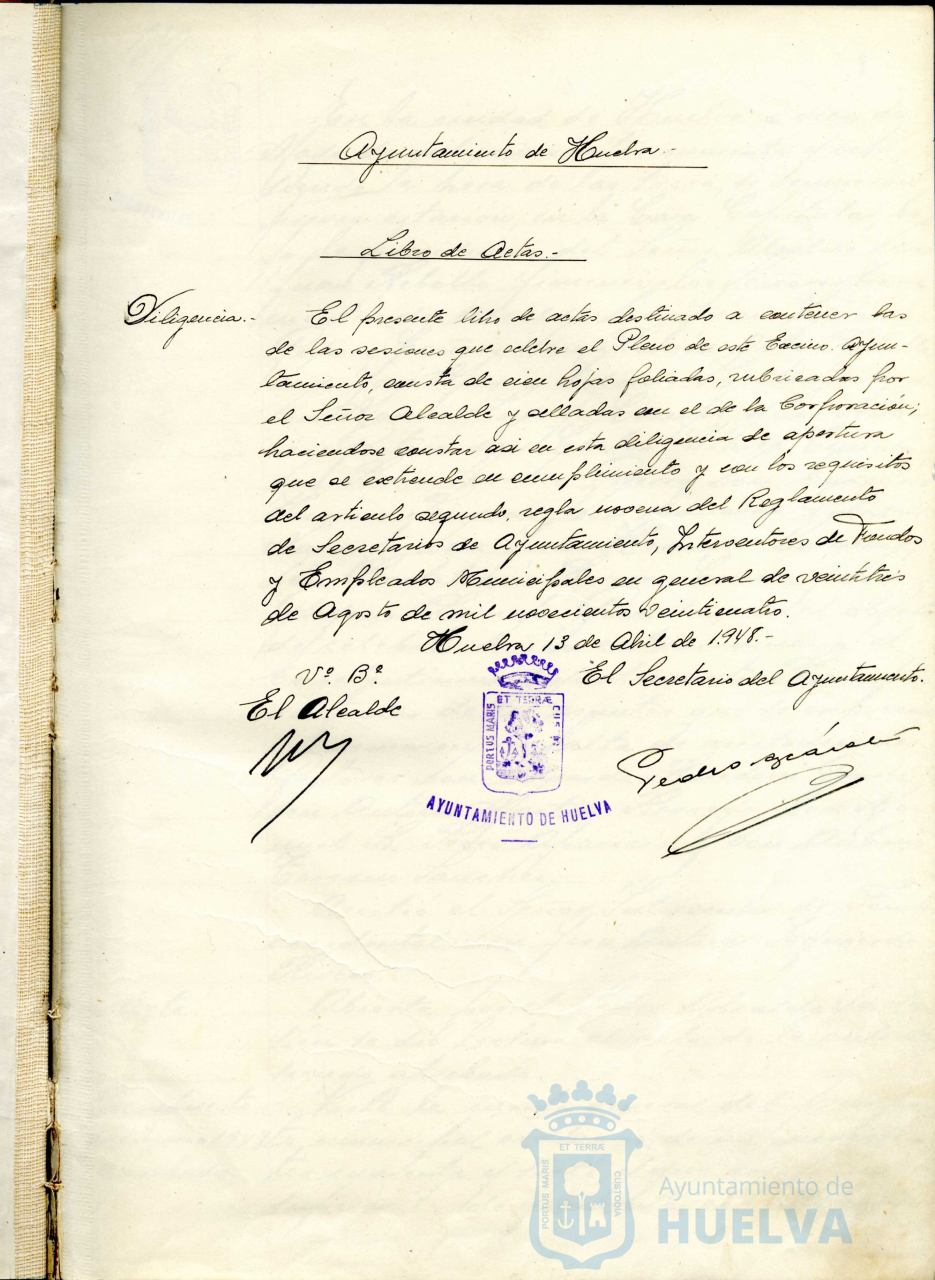 Ayuntamiento de Huelva.-
Libro de Actas.-
Diligencia.- El presente libro de actas destinado a contener las
de las sesiones que celebre el Pleno de este Excmo. Ayun-
tamiento, consta de cien hojas foliadas, rubricadas por
el Señor Alcalde y selladas con el de la Corporación;
haciendose constar asi en esta diligencia de apertura
que se extiende en cumplimiento y con los requisitos
del articulo segundo, regla novena del Reglamento
de Secretarios de Ayuntamiento, Interventores de Fondos
y Empleados Municipales en general de veintitres
de Agosto de mil novecientos veinticuatro.
Huelva 13 de Abril de 1.948.-
Vº. Bº.
El Alcalde
El Secretario del Ayuntamiento.
PORTUS MARIS
ET TERRÆ
AYUNTAMIENTO DE HUELVA
Pedro
PORTUS MARIS
ET TERRÆ
CUSTODIA
Ayuntamiento de
HUELVA